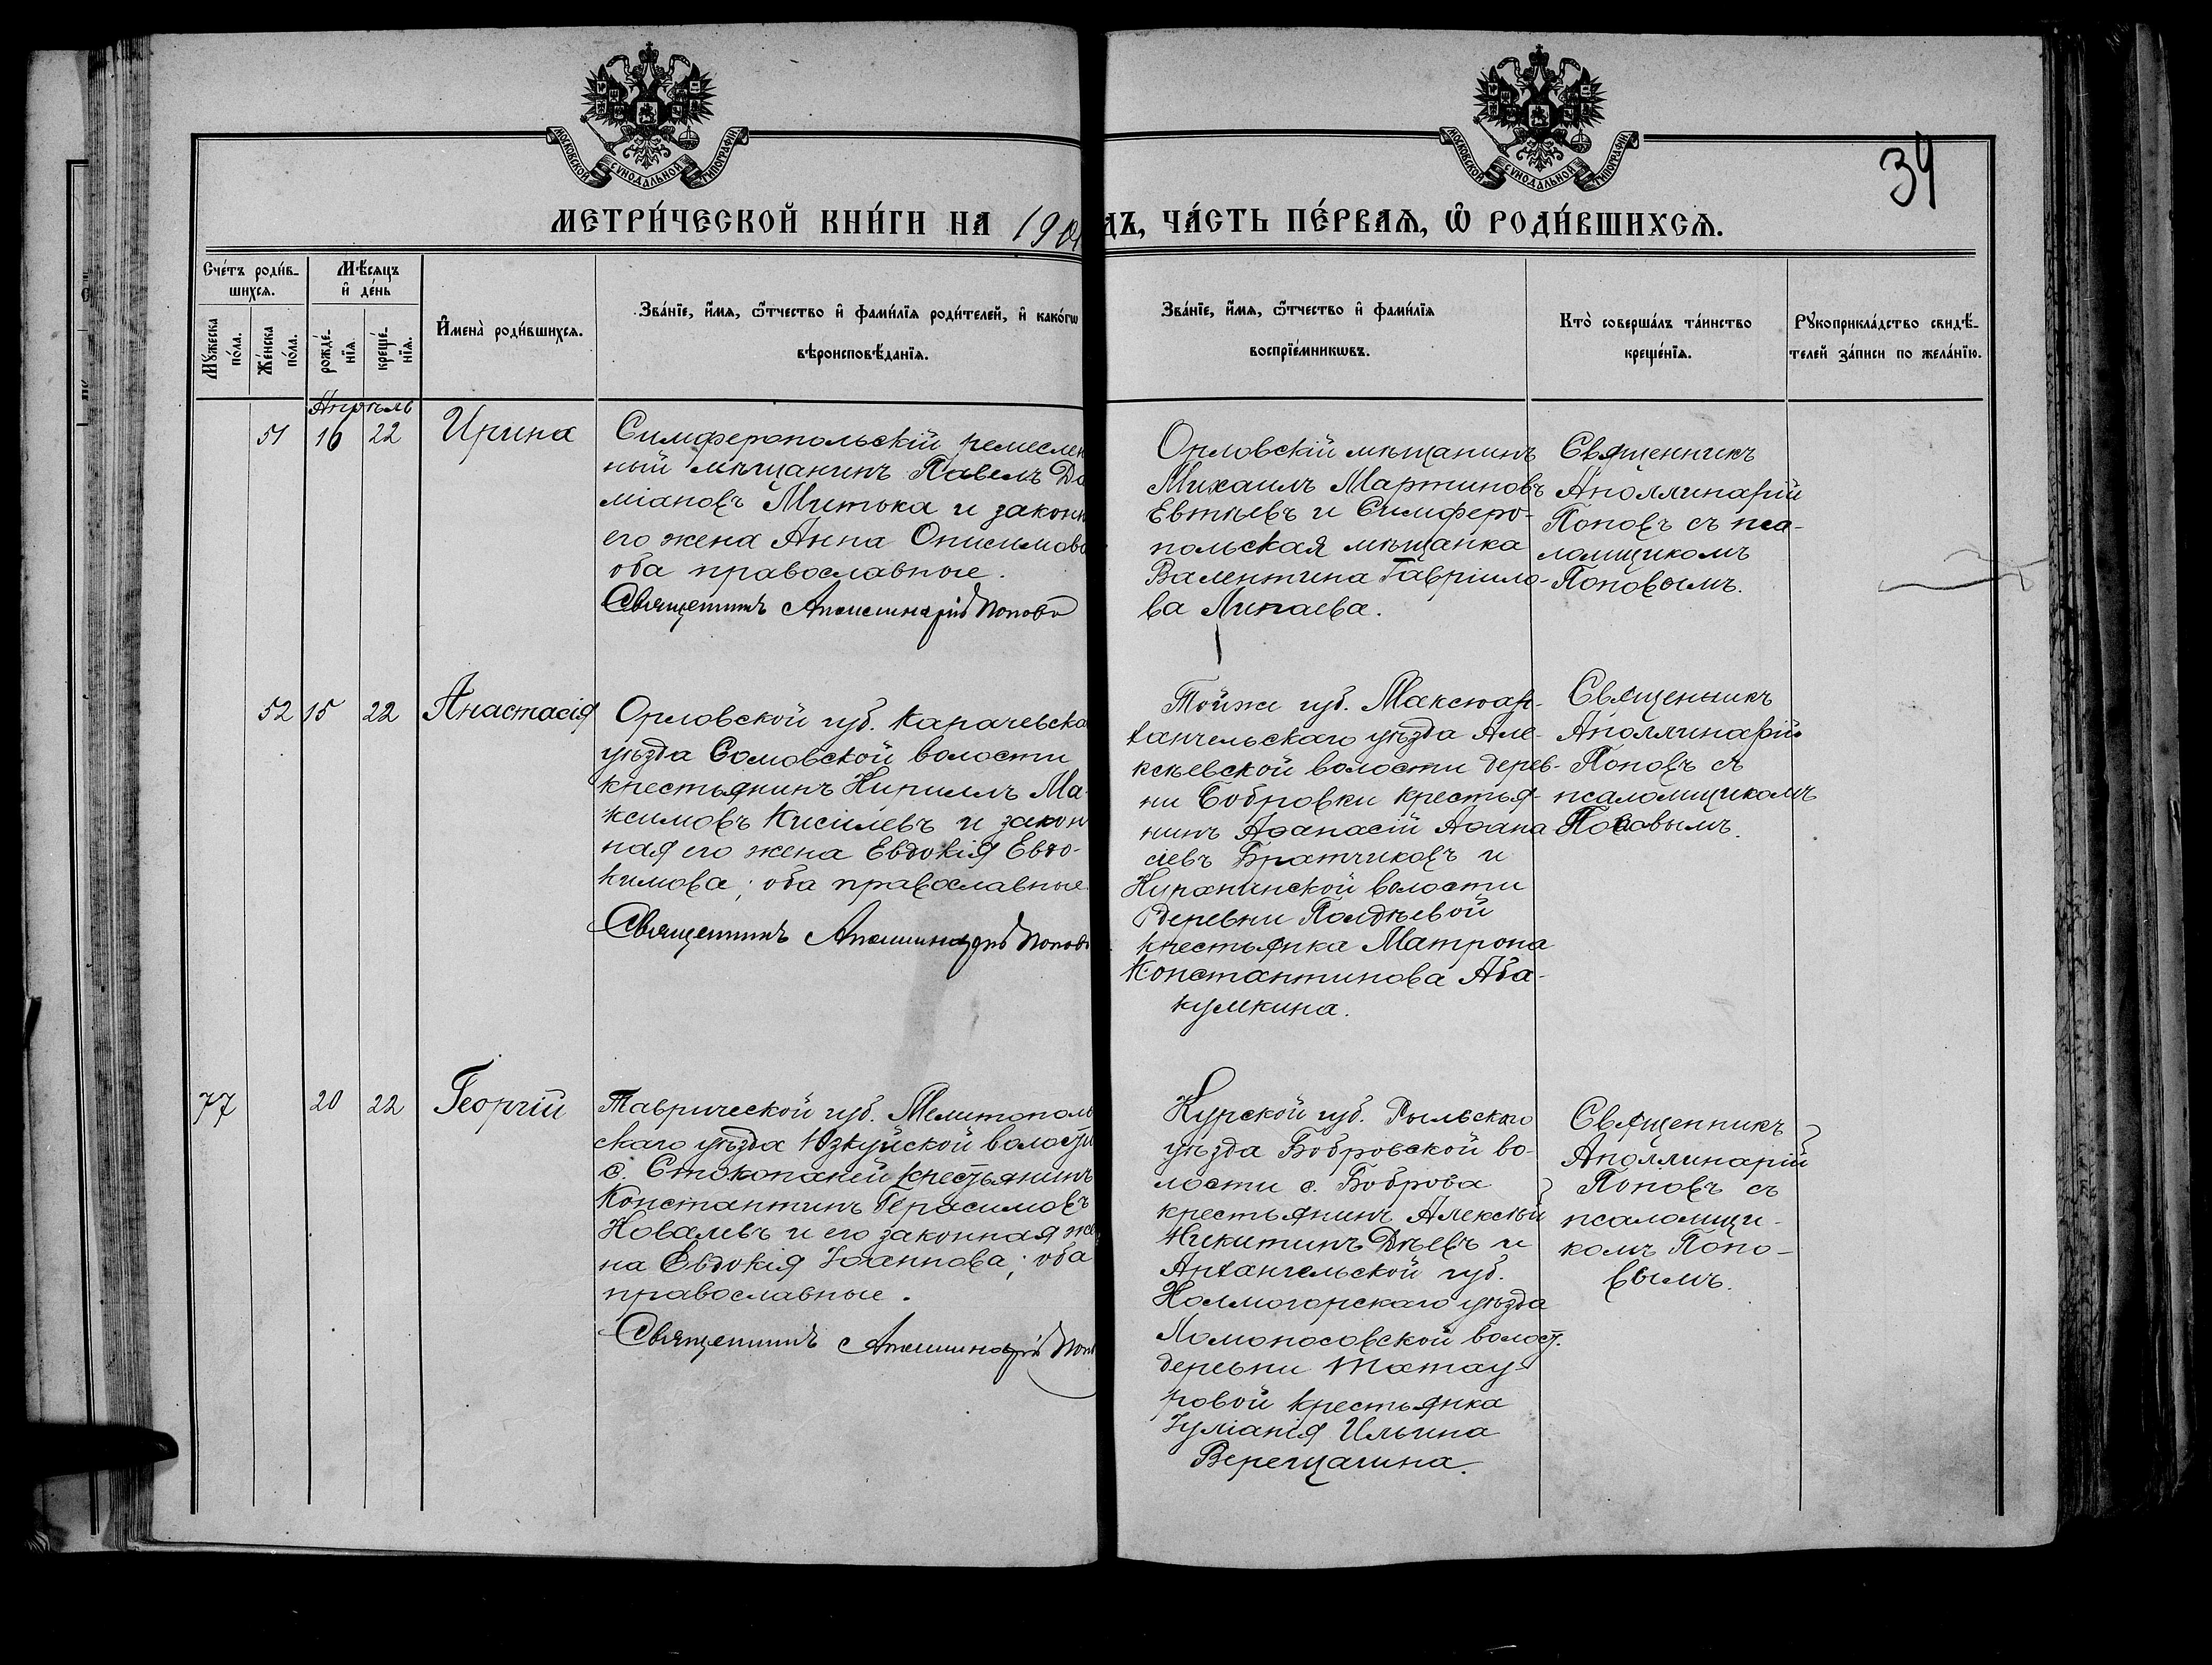 МОСКОВСКОЙ СѴНОДАЛЬНОЙ ТИПОГРАФІИ
МОСКОВСКОЙ СѴНОДАЛЬНОЙ ТИПОГРАФІИ
34
МЕТРИ́ЧЕСКОЙ КНИ́ГИ НА 190
ДЪ, ЧА́СТЬ ПЕ́РВАѦ, Ѡ҆ РОДИ́ВШИХСѦ.
Сче́тъ роди́в-
шихсѧ.
Мѣ́сѧцъ
и҆ де́нь
Мꙋ́жеска
по́ла.
Же́нска
по́ла.
рожде́-
нїѧ.
креще́-
нїѧ.
И҆мена̀ роди́вшихсѧ.
Зва́нїе, и҆́мѧ, ѻ҆́тчество и҆ фами́лїѧ роди́телей, и҆ како́гѡ
вѣроисповѣ́данїѧ.
Зва́нїе, и҆́мѧ, ѻ҆́тчество и҆ фами́лїѧ
воспрїе́мникѡвъ.
Кто̀ соверша́лъ та́инство
креще́нїѧ.
Рꙋкоприкла́дство свидѣ́-
телей за́писи по жела́нїю.
Апрѣль
51 16 22 Ирина
Симферопольскій ремеслен
ный мѣщанинъ Павелъ Да
міановъ Митька и законн
его жена Анна Онисимова
оба православные.
Священникъ Аполлинарій Поповъ
Орловскій мѣщанинъ
Михаилъ Мартиновъ
Евтѣевъ и Симферо-
польская мѣщанка
Валентина Гавріило-
ва Липаева.
Священникъ
Аполлинарій
Поповъ съ пса-
ломщикомъ
Поповымъ.
52 15 22 Анастасія
Орловской губ. Карачевска
уѣзда Сомовской волости
крестьянинъ Кириллъ Ма-
ксимовъ Кисилевъ и закон
ная его жена Евдокія Евдо-
кимова; оба православные
Священникъ Аполлинарій Поповъ
Тойже губ.
Алe-
ксѣевской волости дерев-
ни Бобровки крестья-
нинъ Аѳанасій Аѳана
сіевъ Братчиковъ и
волости
деревни Полдневой
крестьянка Матрона
Константинова Аба-
кумкина.
Священникъ
Аполлинарій
Поповъ съ
псаломщикомъ
Поповымъ.
77 20 22 Георгій
Таврической губ. Мелитополь
скаго уѣзда Юзкуйской волости
с. Стокопаней крестьянинъ
Константинъ Герасимовъ
Ковалевъ и его законная же
на Евдокія Іоаннова; оба
православные.
Священникъ Аполлинарій Поп
Курской губ. Рыльскаго
уѣзда Бобровской во-
лости с. Боброва
крестьянинъ Алексѣй
Никитинъ Дѣевъ и
Архангельской губ.
Холмогорскаго уѣзда
Ломоносовской волост.
деревни Матау-
ровой крестьянка
Іуліанія Ильина
Верещагина.
Священникъ
Аполлинарій
Поповъ съ
псаломщи-
комъ Попо-
вымъ.